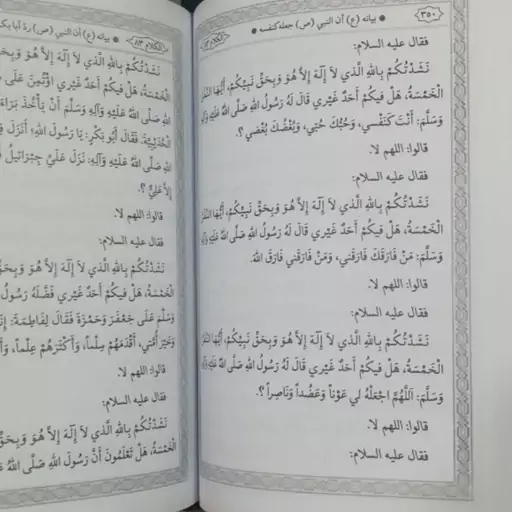 ﴿٣٥٠﴾ ● بيانه (ع) أن النبي (ص) جعله كنفسه ●
فقال عليه السلام:
نَشَدْتُكُمْ بِاللهِ الَّذي لا إِلَهَ إِلاَّ هُوَ وَبِحَقِّ نَبِيِّكُمْ، أَيُّهَا
الْخَمْسَةُ، هَلْ فيكُمْ أَحَدٌ غَيْري قَالَ لَهُ رَسُولُ اللهِ صَلَّى اللهُ عَلَيْهِ
وَسَلَّمَ: أَنْتَ كَنَفْسي، وَحُبُّكَ حُبّي، وَبُغْضُكَ بُغْضي؟.
قالوا: اللهم لا.
فقال عليه السلام:
نَشَدْتُكُمْ بِاللهِ الَّذي لا إِلَهَ إِلاَّ هُوَ وَبِحَقِّ نَبِيِّكُمْ، أَيُّهَا
الْخَمْسَةُ، هَلْ فيكُمْ أَحَدٌ غَيْري قَالَ لَهُ رَسُولُ اللهِ صَلَّى اللهُ عَلَيْهِ
وَسَلَّمَ: مَنْ فَارَقَكَ فَارَقَني، وَمَنْ فَارَقَني فَارَقَ اللهَ.
قالوا: اللهم لا.
فقال عليه السلام:
نَشَدْتُكُمْ بِاللهِ الَّذي لا إِلَهَ إِلاَّ هُوَ وَبِحَقِّ نَبِيِّكُمْ، أَيُّهَا
الْخَمْسَةُ، هَلْ فيكُمْ أَحَدٌ غَيْري قَالَ لَهُ رَسُولُ اللهِ صَلَّى اللهُ عَلَيْهِ
وَسَلَّمَ: اَللَّهُمَّ اجْعَلْهُ لي عَوْناً وَعَضُداً وَنَاصِراً؟.
قالوا: اللهم لا.
فقال عليه السلام:
﴿الكلام ٨٣﴾ ● بيانه (ع) أن النبي (ص) ردّ أبا
نَشَدْتُكُمْ بِاللهِ الَّذي لا إِلَهَ إِلاَّ هُوَ وَبِحَقِّ
الْخَمْسَةُ، هَلْ فيكُمْ أَحَدٌ غَيْري اؤْتُمِنَ عَلَى
اللهِ صَلَّى اللهُ عَلَيْهِ وَآلِهِ وَسَلَّمَ أَنْ يَأْخُذَ بَرَاءَةَ
فَقَالَ أَبُو بَكْرٍ: يَا رَسُولَ اللهِ؛ أَنَزَلَ
اللهِ صَلَّى اللهُ عَلَيْهِ وَآلِهِ: نَزَلَ عَلَيَّ جِبْرَائيلُ
عَلِيٌّ؟.
قالوا: اللهم لا.
فقال عليه السلام:
نَشَدْتُكُمْ بِاللهِ الَّذي لا إِلَهَ إِلاَّ هُوَ وَبِحَقِّ
الْخَمْسَةُ، هَلْ فيكُمْ أَحَدٌ غَيْري فَضَّلَهُ رَسُولُ
وَسَلَّمَ عَلَى جَعْفَرَ وَحَمْزَةَ فَقَالَ لِفَاطِمَةَ:
وَخَيْرَ أُمَّتي، أَقْدَمَهُمْ سِلْماً، وَأَكْثَرَهُمْ عِلْماً،
قالوا: اللهم لا.
فقال عليه السلام:
نَشَدْتُكُمْ بِاللهِ الَّذي لا إِلَهَ إِلاَّ هُوَ وَبِحَقِّ
الْخَمْسَةُ، هَلْ تَعْلَمُونَ أَنَّ رَسُولَ اللهِ صَلَّى اللهُ